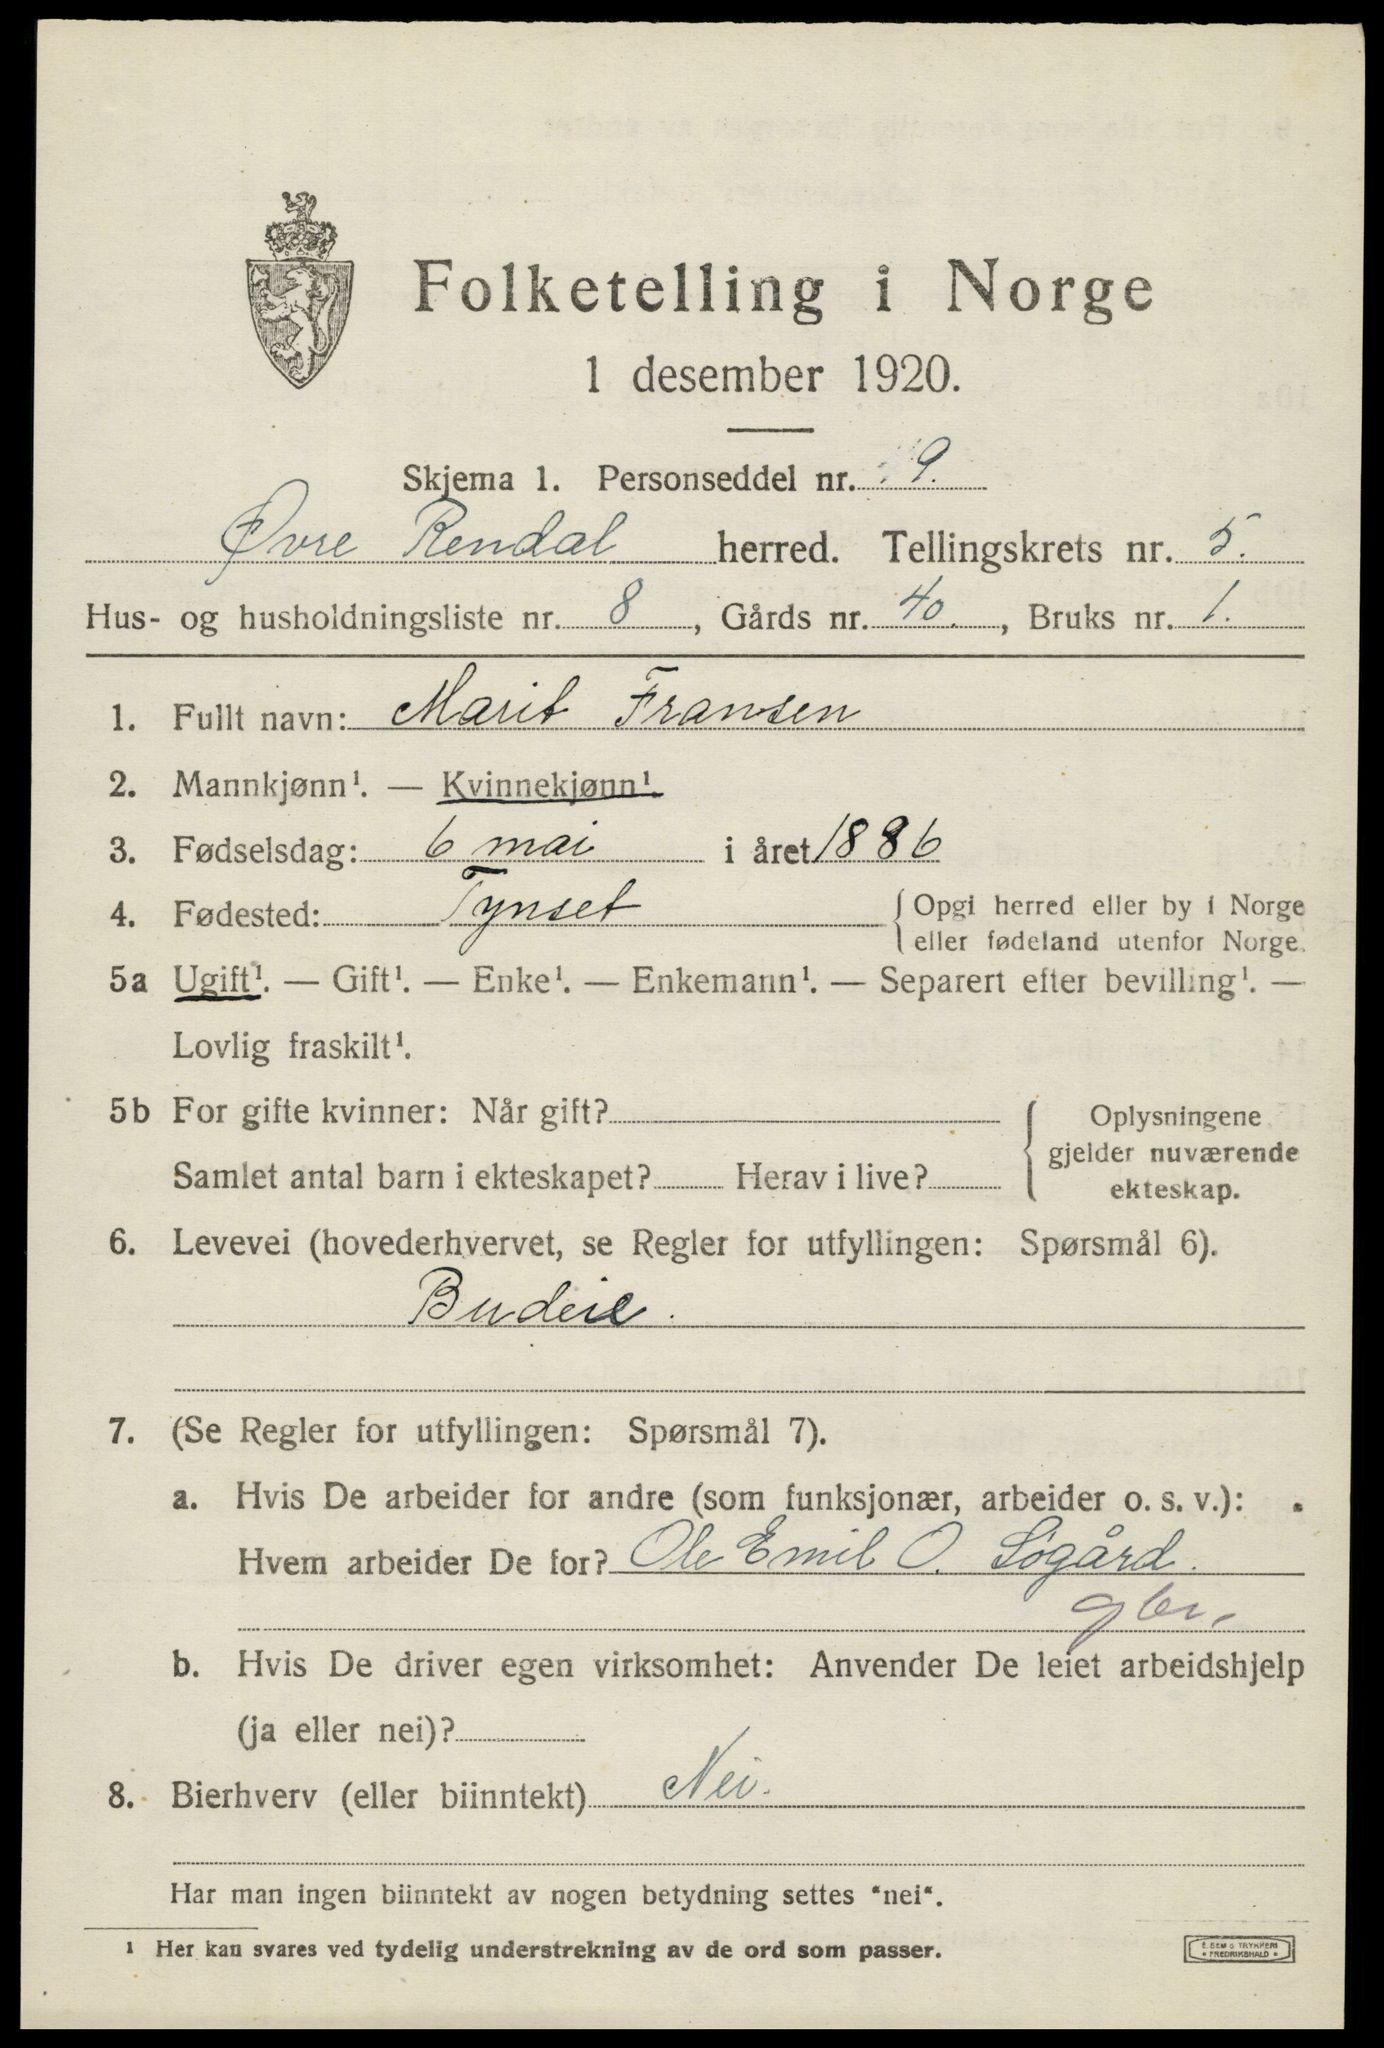 Folketelling i Norge
1 desember 1920.
Skjema 1. Personseddel nr. 9.
Øvre Rendal herred. Tellingskrets nr. 5.
Hus- og husholdningsliste nr. 8, Gårds nr. 40., Bruks nr. 1.
1. Fullt navn: Marit Fransen
2. Mannkjønn¹. — Kvinnekjønn¹.
3. Fødselsdag: 6 mai i året 1886
4. Fødested: Tynset { Opgi herred eller by i Norge
eller fødeland utenfor Norge.
5a Ugift¹. — Gift¹. — Enke¹. — Enkemann¹. — Separert efter bevilling¹. —
Lovlig fraskilt¹.
5b For gifte kvinner: Når gift?
Samlet antal barn i ekteskapet? Herav i live?
Oplysningene
gjelder nuværende
ekteskap.
6. Levevei (hovederhvervet, se Regler for utfyllingen: Spørsmål 6).
Budeie.
7. (Se Regler for utfyllingen: Spørsmål 7).
a. Hvis De arbeider for andre (som funksjonær, arbeider o. s. v.):
Hvem arbeider De for? Ole Emil O. Søgård.
gbr.
b. Hvis De driver egen virksomhet: Anvender De leiet arbeidshjelp
(ja eller nei)?
8. Bierhverv (eller biinntekt) Nei.
Har man ingen biinntekt av nogen betydning settes “nei“.
¹ Her kan svares ved tydelig understrekning av de ord som passer.
E. SEM'S TRYKKERI
• FREDRIKSHALD •